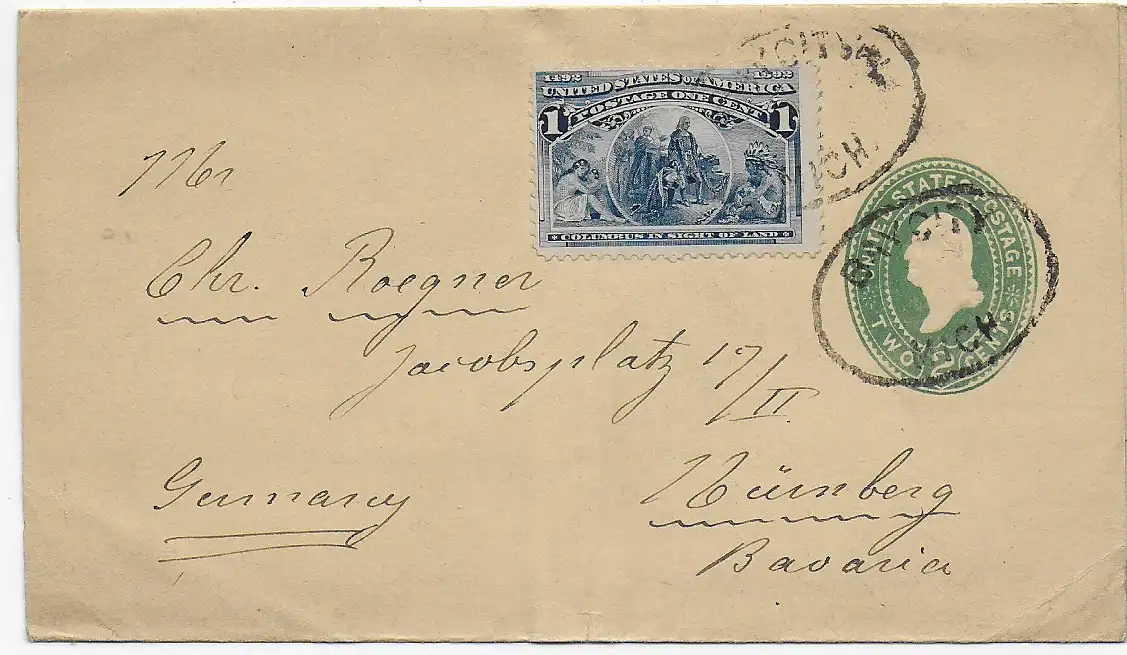 1492 1892
UNITED STATES OF AMERICA
POSTAGE ONE CENT
1 1
COLUMBUS IN SIGHT OF LAND
CITY
ICH.
UNITED STATES POSTAGE
TWO 2 CENTS
CITY
MICH.
Mr
Chr. Roegner
Jacobsplatz 17/II
Germany
Nürnberg
Bavaria